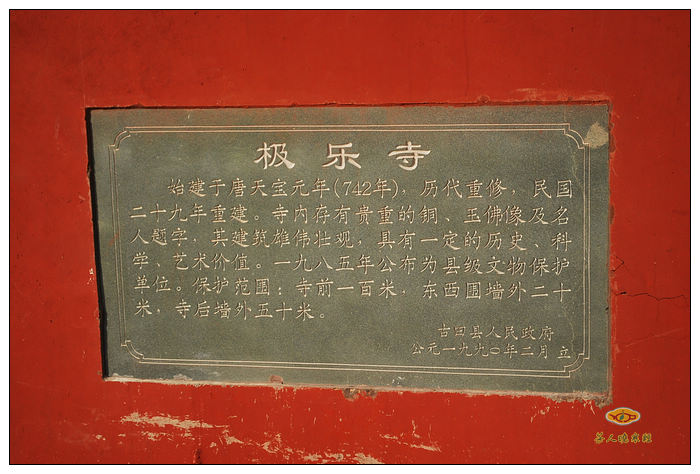 极乐寺
始建于唐天宝元年(742年)，历代重修，民国
二十九年重建。寺内存有贵重的铜、玉佛像及名
人题字，其建筑雄伟壮观，具有一定的历史、科
学、艺术价值。一九八五年公布为县级文物保护
单位。保护范围：寺前一百米，东西围墙外二十
米，寺后墙外五十米。
古田县人民政府
公元一九九〇年二月 立